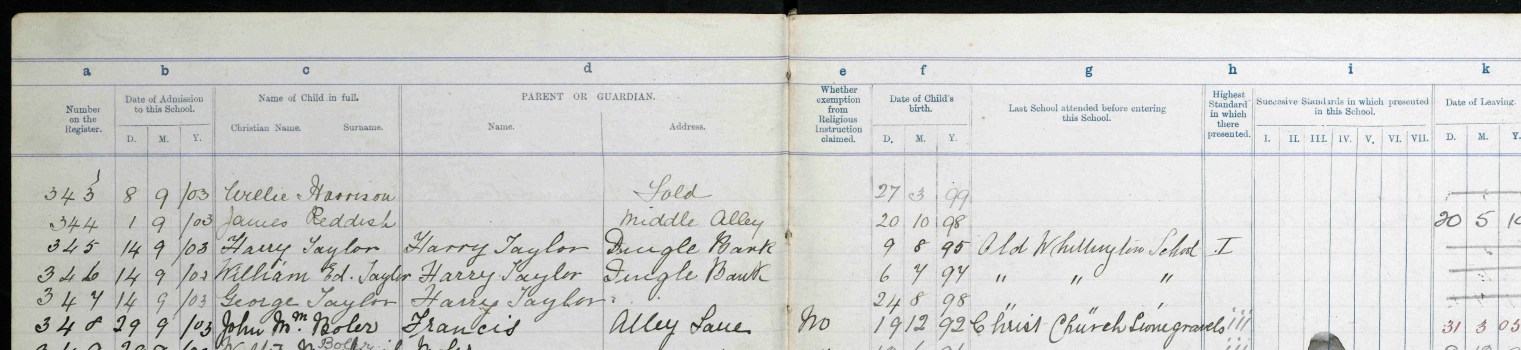 a b c d e f g h i k
Number on the Register. Date of Admission to this School. Name of Child in full. PARENT OR GUARDIAN. Whether exemption from Religious Instruction claimed. Date of Child's birth. Last School attended before entering this School. Highest Standard in which there presented. Successive Standards in which presented in this School. Date of Leaving.
D. M. Y. Christian Name. Surname. Name. Address. D. M. Y. I. II. III. IV. V. VI. VII. D. M. Y.
343 8 9 /03 Willie Harrison 27 3 99
344 1 9 /03 James Reddish Middle Alley 20 10 98 20 5
345 14 9 /03 Harry Taylor Harry Taylor Dingle Bank 9 8 95 Old Whittington School I
346 14 9 /03 William Ed. Taylor Harry Taylor Dingle Bank 6 7 97 " " "
347 14 9 /03 George Taylor Harry Taylor 24 8 98 " "
348 29 9 /03 John Wm Boler Francis Alley Lane No 19 12 92 Christ Church iii 31 3 05